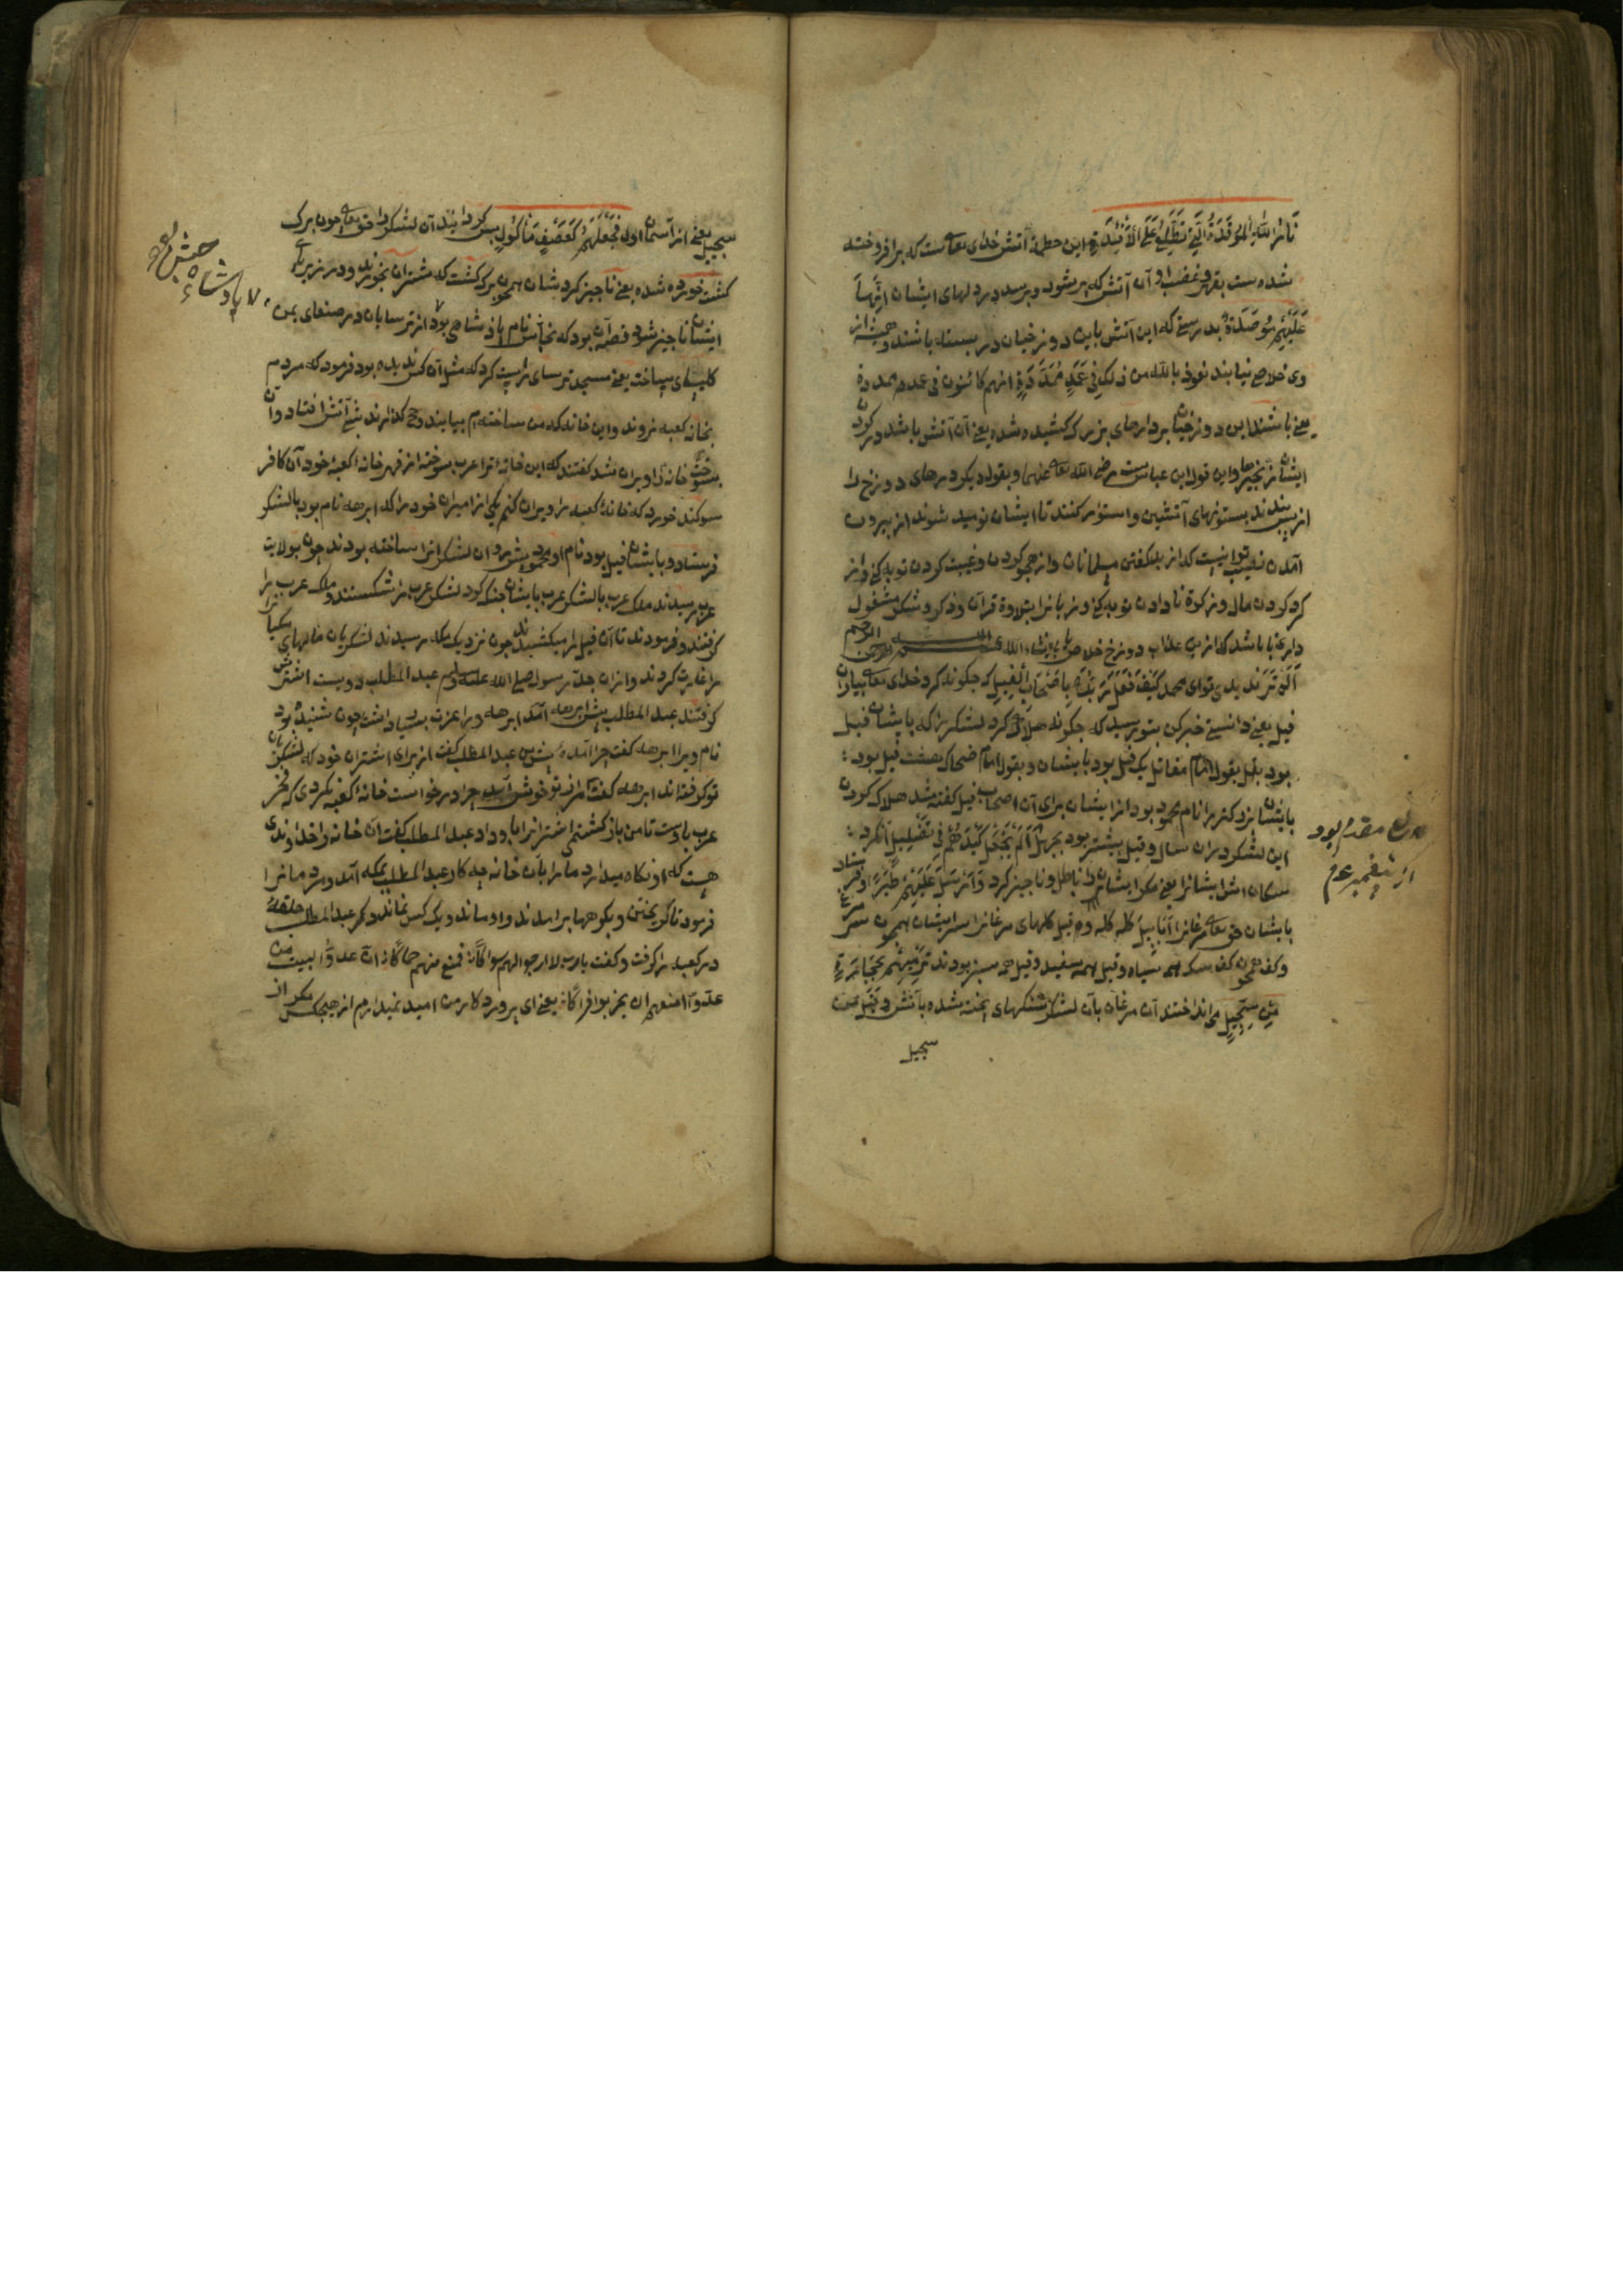 نَارُ اللّٰهِ الْمُوقَدَةُ الَّتِي تَطَّلِعُ عَلَى الْاَفْئِدَةِ این حطمة آتش خدای تعالی ست که برافروخته
شده ست بقهر وغضب او آن آتش که بر شود وبرسد در دلهای ایشان اِنَّهَا
عَلَيْهِمْ مُؤْصَدَةٌ بدرستی که این آتش باین دوزخیان در بسته باشند وهمیشه از
وی خلاص نیابند نعوذ بالله من ذلک فِي عَمَدٍ مُمَدَّدَةٍ انهم کائنون فی عمد ممددة
یعنی باشند این دوزخیان بر دارهای بزرک کشیده شده یعنی آن آتش باشد در کردن
ایشان زنجیرها واین قول ابن عباس ست رضی الله تعالی عنهما وبقول دیکر درهای دوزخ را
از پس بندند بستونهای آتشین واستوار کنند تا ایشان نومید شوند از بیرون
آمدن نصیب تو اینست که از بد کفتن مسلمانان واز هجو کردن وغیبت کردن توبه کنی واز
کرد کردن مال وزکوة نادادن توبه کنی وزبانرا بتلاوة قرآن وذکر وشکر مشغول
داری تا باشد که ازین عذاب دوزخ خلاص یابی انشاء الله تعالی بسم الله الرحمن الرحیم
اَلَمْ تَرَ ندیدی تو ای محمد کَيْفَ فَعَلَ رَبُّكَ بِاَصْحَابِ الْفِيلِ که چکونه کرد خدای تعالی بیاران
فیل یعنی دانستی خبر کن بتو رسید که چکونه هلاک کرد لشکری را که بایشان فیل
بود بقول امام مقاتل یک فیل بود بایشان وبقول امام ضحاک هشت فیل بود
بایشان بزرکتر را نام محمود بود از ایشان برای آن اصحاب فیل کفته شد هلاک کردن
این لشکر در آن سال وقیل بیشتر بود بچهل اَلَمْ يَجْعَلْ كَيْدَهُمْ فِي تَضْلِيلٍ آنکرد
سکان اش ایشانرا یعنی مکر ایشانرا باطل وناچیز کرد وَاَرْسَلَ عَلَيْهِمْ طَيْرًا وفرستاد
بایشان حق تعالی مرغانرا اَبَابِيلَ کله کله وقیل کلهای مرغانرا سر ایشان همچون سر مرغ
وکف همچون کف سک همه سیاه وقیل همه سفید وقیل همه سبز بودند تَرْمِيهِمْ بِحِجَارَةٍ
مِنْ سِجِّيلٍ می انداختند آن مرغان بآن لشکر سنکهای پخته شده بآتش وقیل من
سجیل
مقدم بود
از پیغمبر عم
سجیل یعنی از آسمان اول فَجَعَلَهُمْ كَعَصْفٍ مَأْكُولٍ پس کردانید آن لشکر را حق تعالی چون برک
کشت خورده شده یعنی ناچیز کردشان همچون برک کشت که شتران بخورند ودر زیر پای
ایشان ناچیز شود قصه آن بود که نجاشی نام پادشاهی بود از ترسایان در صنعای یمن
کلیسای بساخت یعنی مسجد ترسای راست کرد که مثل آن کس ندیده بود فرمود که مردم
بخانه کعبه نروند واین خانه که من ساخته ام بیایند وحج کذارند شبی آتش افتاد وآن
بسوخت خانه را ویران شد کفتند که این خانه ترا عرب سوخته از قهر خانه کعبه خود آن کافر
سوکند خورد که خانه کعبه را ویران کنم یکی از امیران خود را که ابرهه نام بود بالشکر
فرستاد وبایشان فیل بود نام او محمود پیش رو آن لشکر اترا ساخته بودند چون بولایت
عرب رسیدند ملک عرب بالشکر عرب بایشان جنک کرد لشکر عرب را شکستند وملک عرب را
کرفتند وفرمودند تا آن فیل را میکشیدند چون نزدیک مکه رسیدند لشکریان مالهای مکیانرا
را غارت کردند واز آن جد رسول صلی الله علیه وسلم عبد المطلب دویست اشترش
کرفتند عبد المطلب پیش ابرهه آمد ابرهه ویرا عزت بسیار داشت چون شنیده بود
نام ویرا ابرهه کفت چرا آمدهٔ پیش من عبد المطلب کفت از برای اشتران خود که لشکریان
تو کرفته اند ابرهه کفت مرا از تو خوش آمد چرا درخواست خانه کعبه نکردی که فخر
عرب باوست تا من بازکشتمی اشترانرا باو داد عبد المطلب کفت آن خانه را خداوندی
هست که او نکاه میدارد ما را بآن خانه چه کار عبد المطلب بمکه آمد ومردمانرا
فرمود تا کریختن وبکوهها برآمدند واو ماند ویک کس نماند ومکر عبد المطلب حلقه
در کعبه را کرفت وکفت یارب لا ارجو لهم سواکا فامنع منهم حماکا ان عدو البیت من
عدوا امنعهم ان یخربوا فراکا یعنی ای پروردکار من امید نمیدارم از هیچکس مکر از
حبش
پادشاه